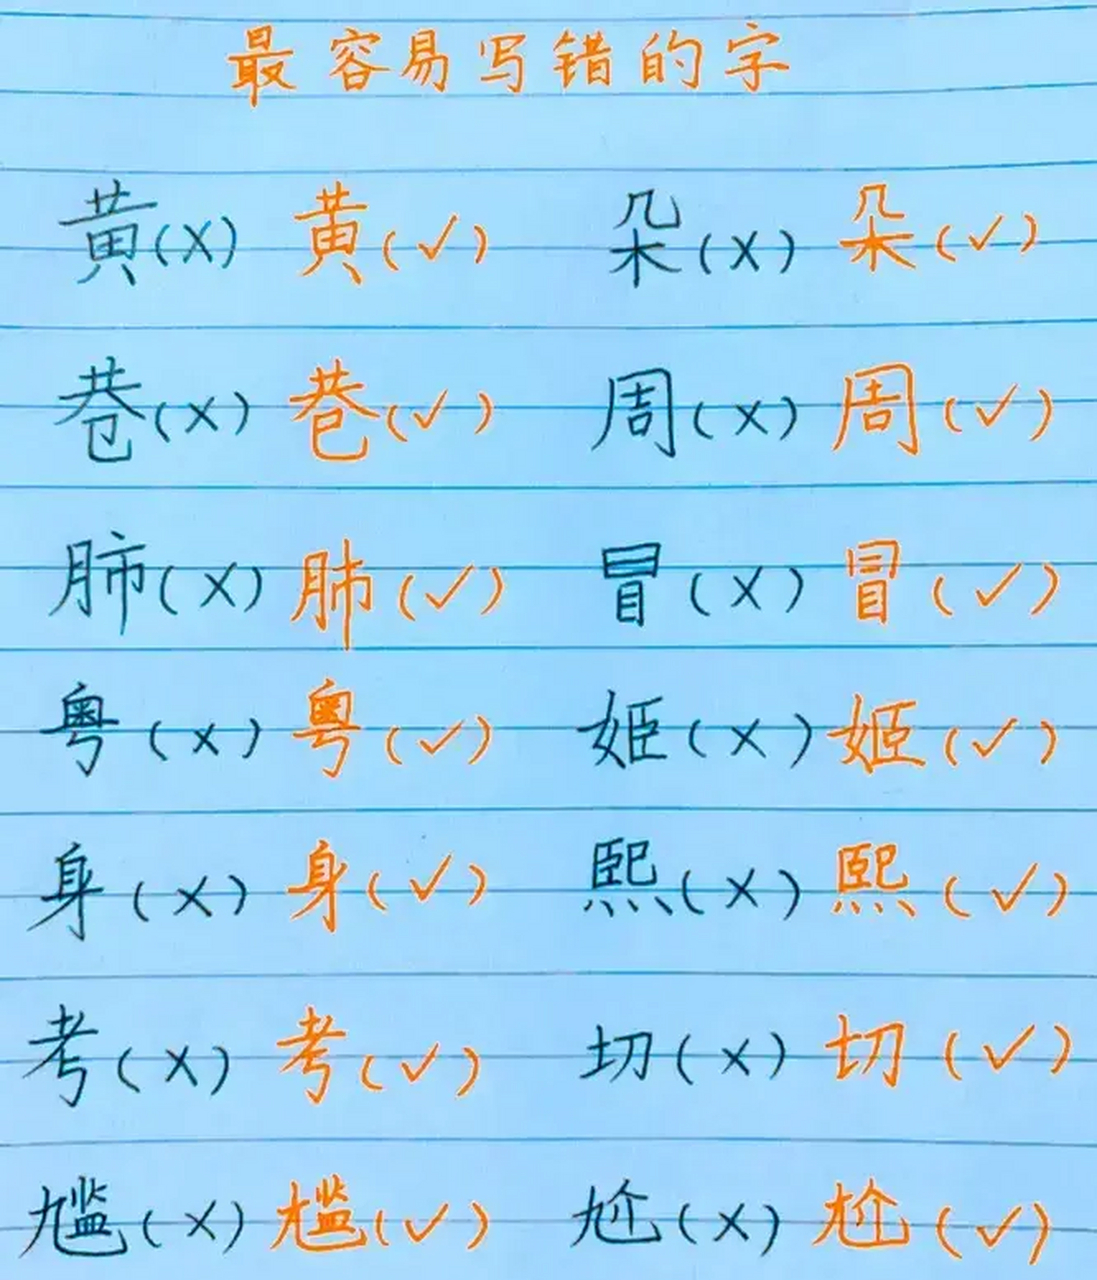 最容易写错的字
黄(X) 黄(✓) 朵(X) 朵(✓)
巷(X) 巷(✓) 周(X) 周(✓)
肺(X) 肺(✓) 冒(X) 冒(✓)
粤(X) 粤(✓) 姬(X) 姬(✓)
身(X) 身(✓) 熙(X) 熙(✓)
考(X) 考(✓) 切(X) 切(✓)
尴(X) 尴(✓) 尬(X) 尬(✓)